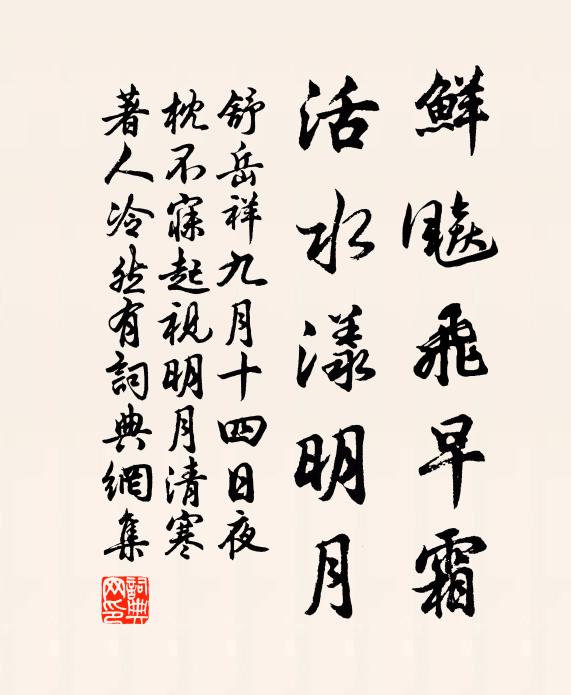 鮮飇飛早霜
活水漾明月
舒岳祥九月十四日夜
枕不寐起視明月清寒
著人冷然有詞典網集
詞典网印